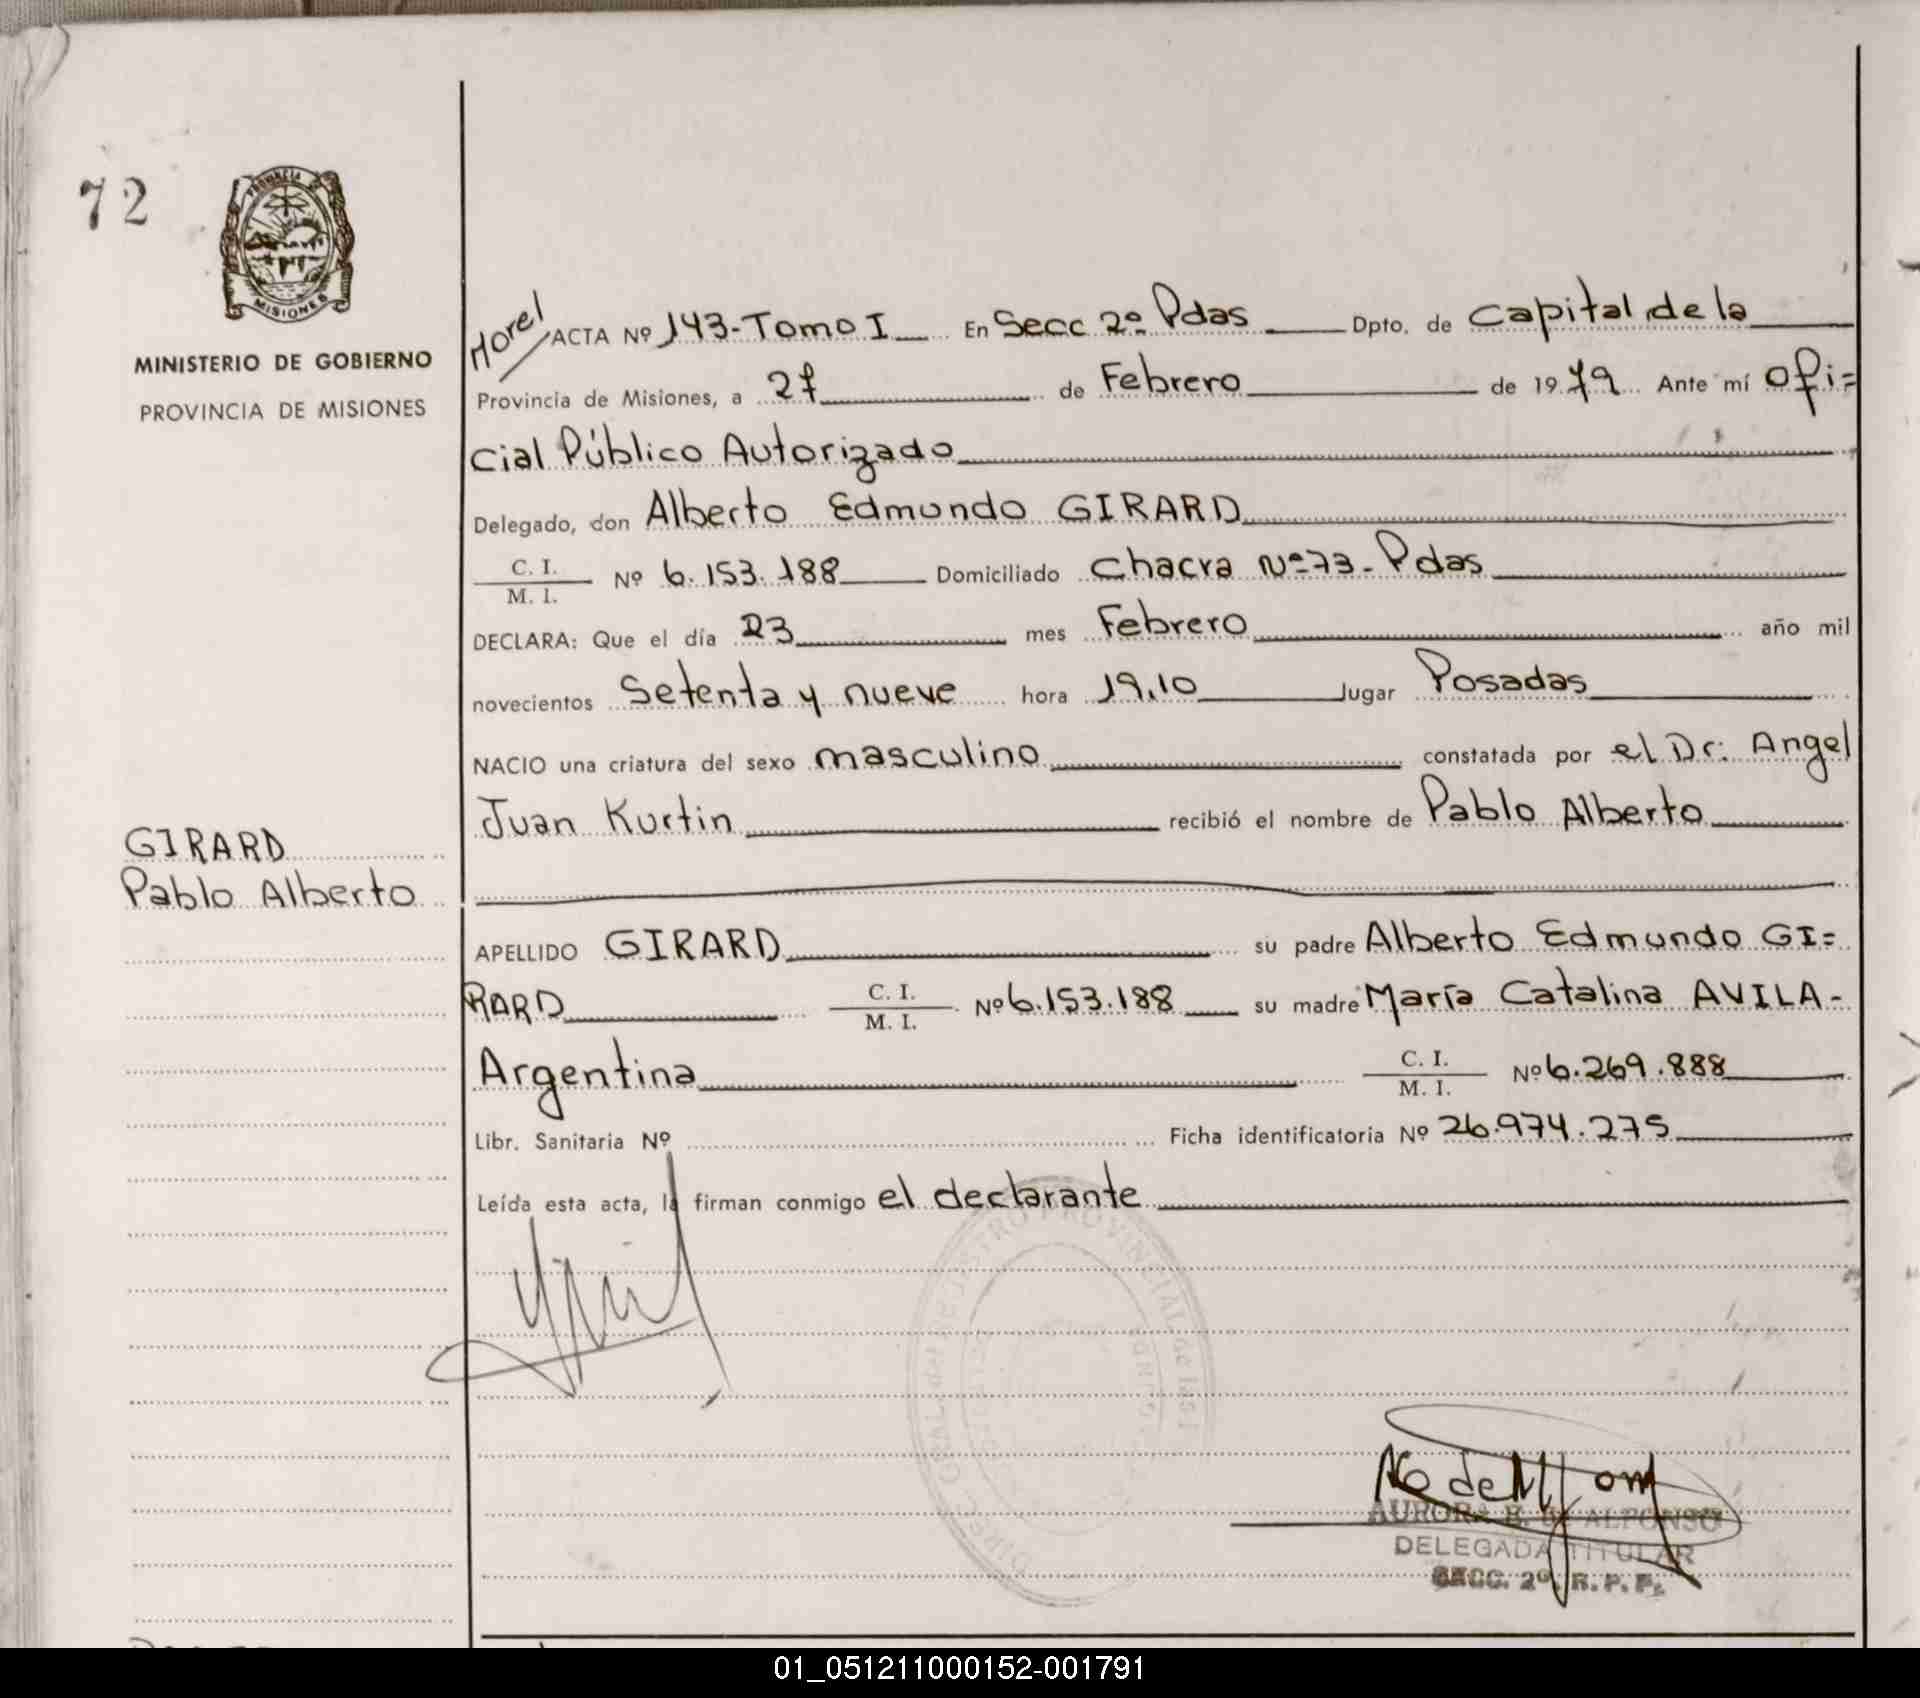 72
PROVINCIA DE
MISIONES
MINISTERIO DE GOBIERNO
PROVINCIA DE MISIONES
Horel
ACTA Nº 143-Tomo I En Secc 2º Pdas Dpto. de Capital de la
Provincia de Misiones, a 27 de Febrero de 1979 Ante mí Ofi=
cial Público Autorizado
Delegado, don Alberto Edmundo GIRARD
C. I.
M. I. Nº 6.153.188 Domiciliado Chacra Nº 73- Pdas
DECLARA: Que el día 23 mes Febrero año mil
novecientos Setenta y nueve hora 19,10 lugar Posadas
NACIO una criatura del sexo masculino constatada por el Dr: Angel
Juan Kurtin recibió el nombre de Pablo Alberto
GIRARD
Pablo Alberto
APELLIDO GIRARD su padre Alberto Edmundo GI=
RARD C. I.
M. I. Nº 6.153.188 su madre María Catalina AVILA-
Argentina C. I.
M. I. Nº 6.269.888
Libr. Sanitaria Nº Ficha identificatoria Nº 26.974.275
Leída esta acta, la firman conmigo el declarante
AURORA B. de ALFONSO
DELEGADA TITULAR
SECC. 2º. R. P. P.
01_051211000152-001791